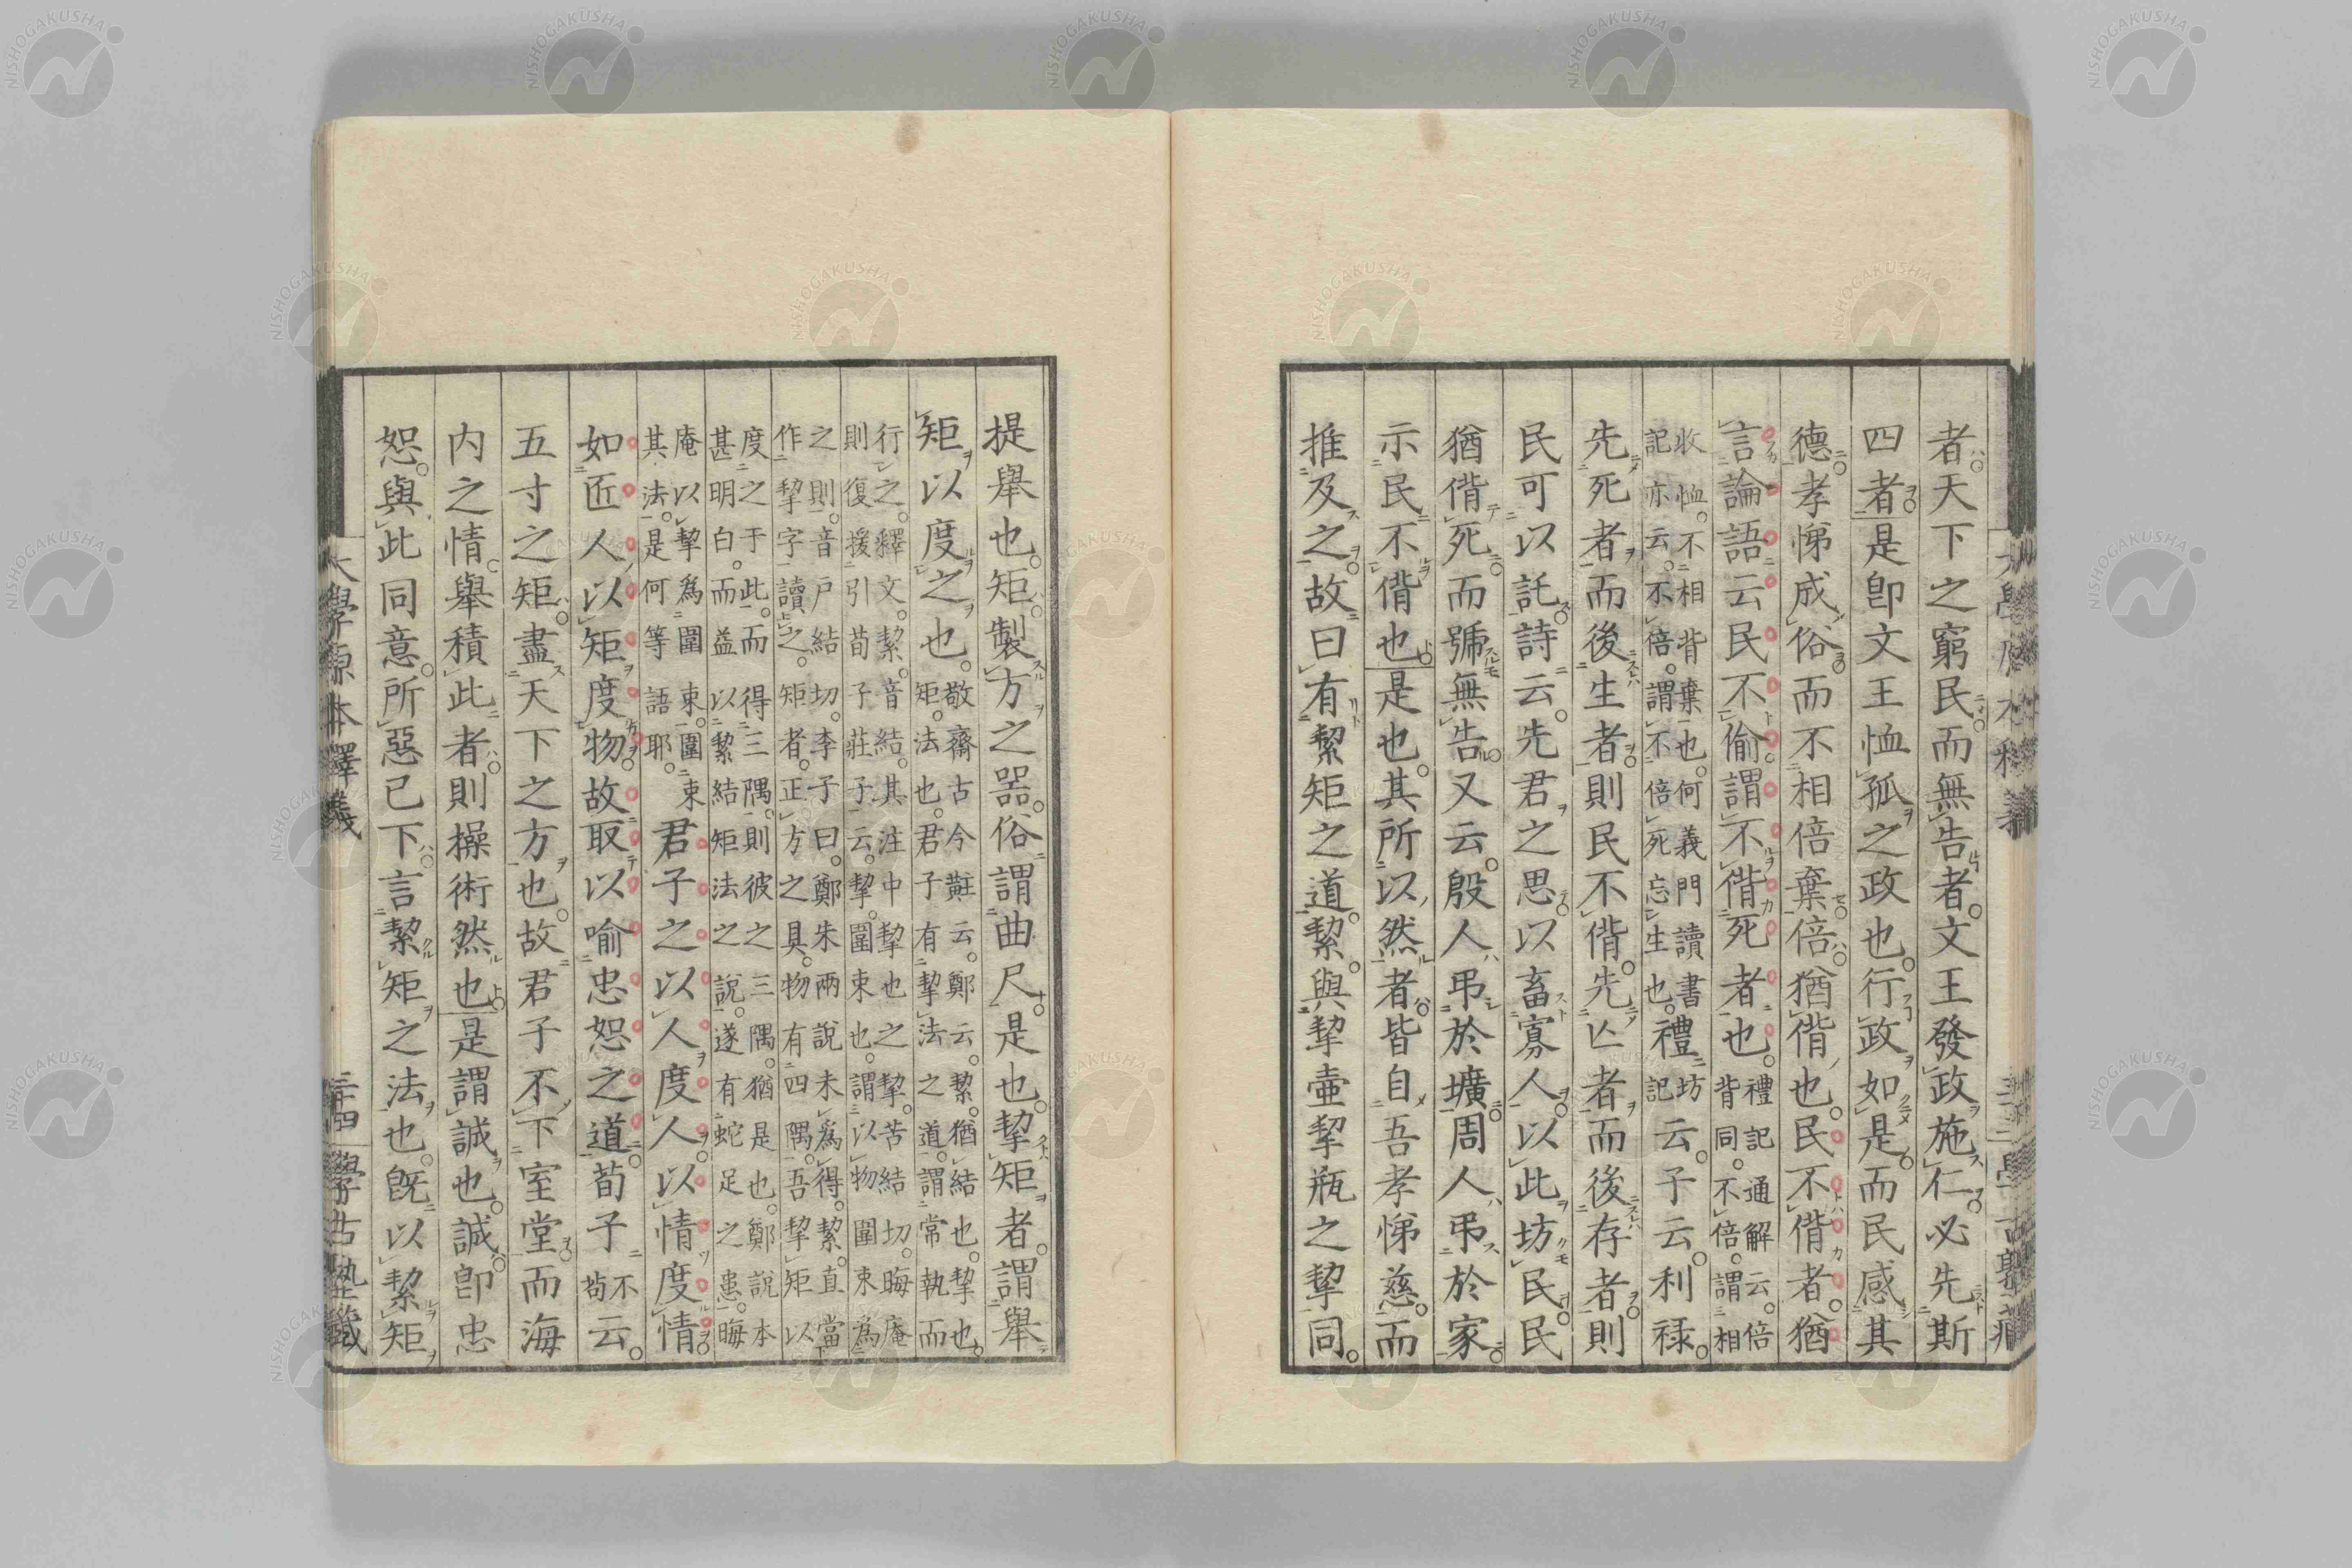 者天下之窮民而無告者文王發政施仁必先斯
四者是卽文王恤孤之政也行政如是而民感其
德孝悌成俗而不相倍棄倍猶偝也民不偝者猶
言論語云民不偷謂不偝死者也禮記通解云倍
背同不倍謂相
收恤不相背棄也何義門讀書
記亦云不倍謂不倍死忘生也禮坊記云子云利祿
先死者而後生者則民不偝先亾者而後存者則
民可以託詩云先君之思以畜寡人以此坊民民
猶偝死而號無告又云殷人弔於壙周人弔於家
示民不偝也是也其所以然者皆自吾孝悌慈而
推及之故曰有絜矩之道絜與挈壷挈瓶之挈同
提舉也矩製方之器俗謂曲尺是也挈矩者謂舉
矩以度之也敬齋古今黈云鄭云絜猶結也挈也
矩法也君子有挈法之道謂常執而
行之釋文絜音結其注中挈也之挈苦結切晦庵
則復援引荀子莊子云挈圍束也謂以物圍束為
之則音戶結切李子曰鄭朱兩說未爲得絜直當
作挈字讀之矩者正方之具物有四隅吾挈矩以
度之于此而得三隅則彼之三隅猶是也鄭說本
甚明白而益以絜結矩法之之說遂有蛇足之患晦
庵以挈爲圍束圍束
其法是何等語耶君子之以人度人以情度情
如匠人以矩度物故取以喻忠恕之道荀子不苟云
五寸之矩盡天下之方也故君子不下室堂而海
内之情舉積此者則操術然也是謂誠也誠卽忠
恕與此同意所惡已下言絜矩之法也旣以絜矩
大學原本釋義
三十四
學古塾藏